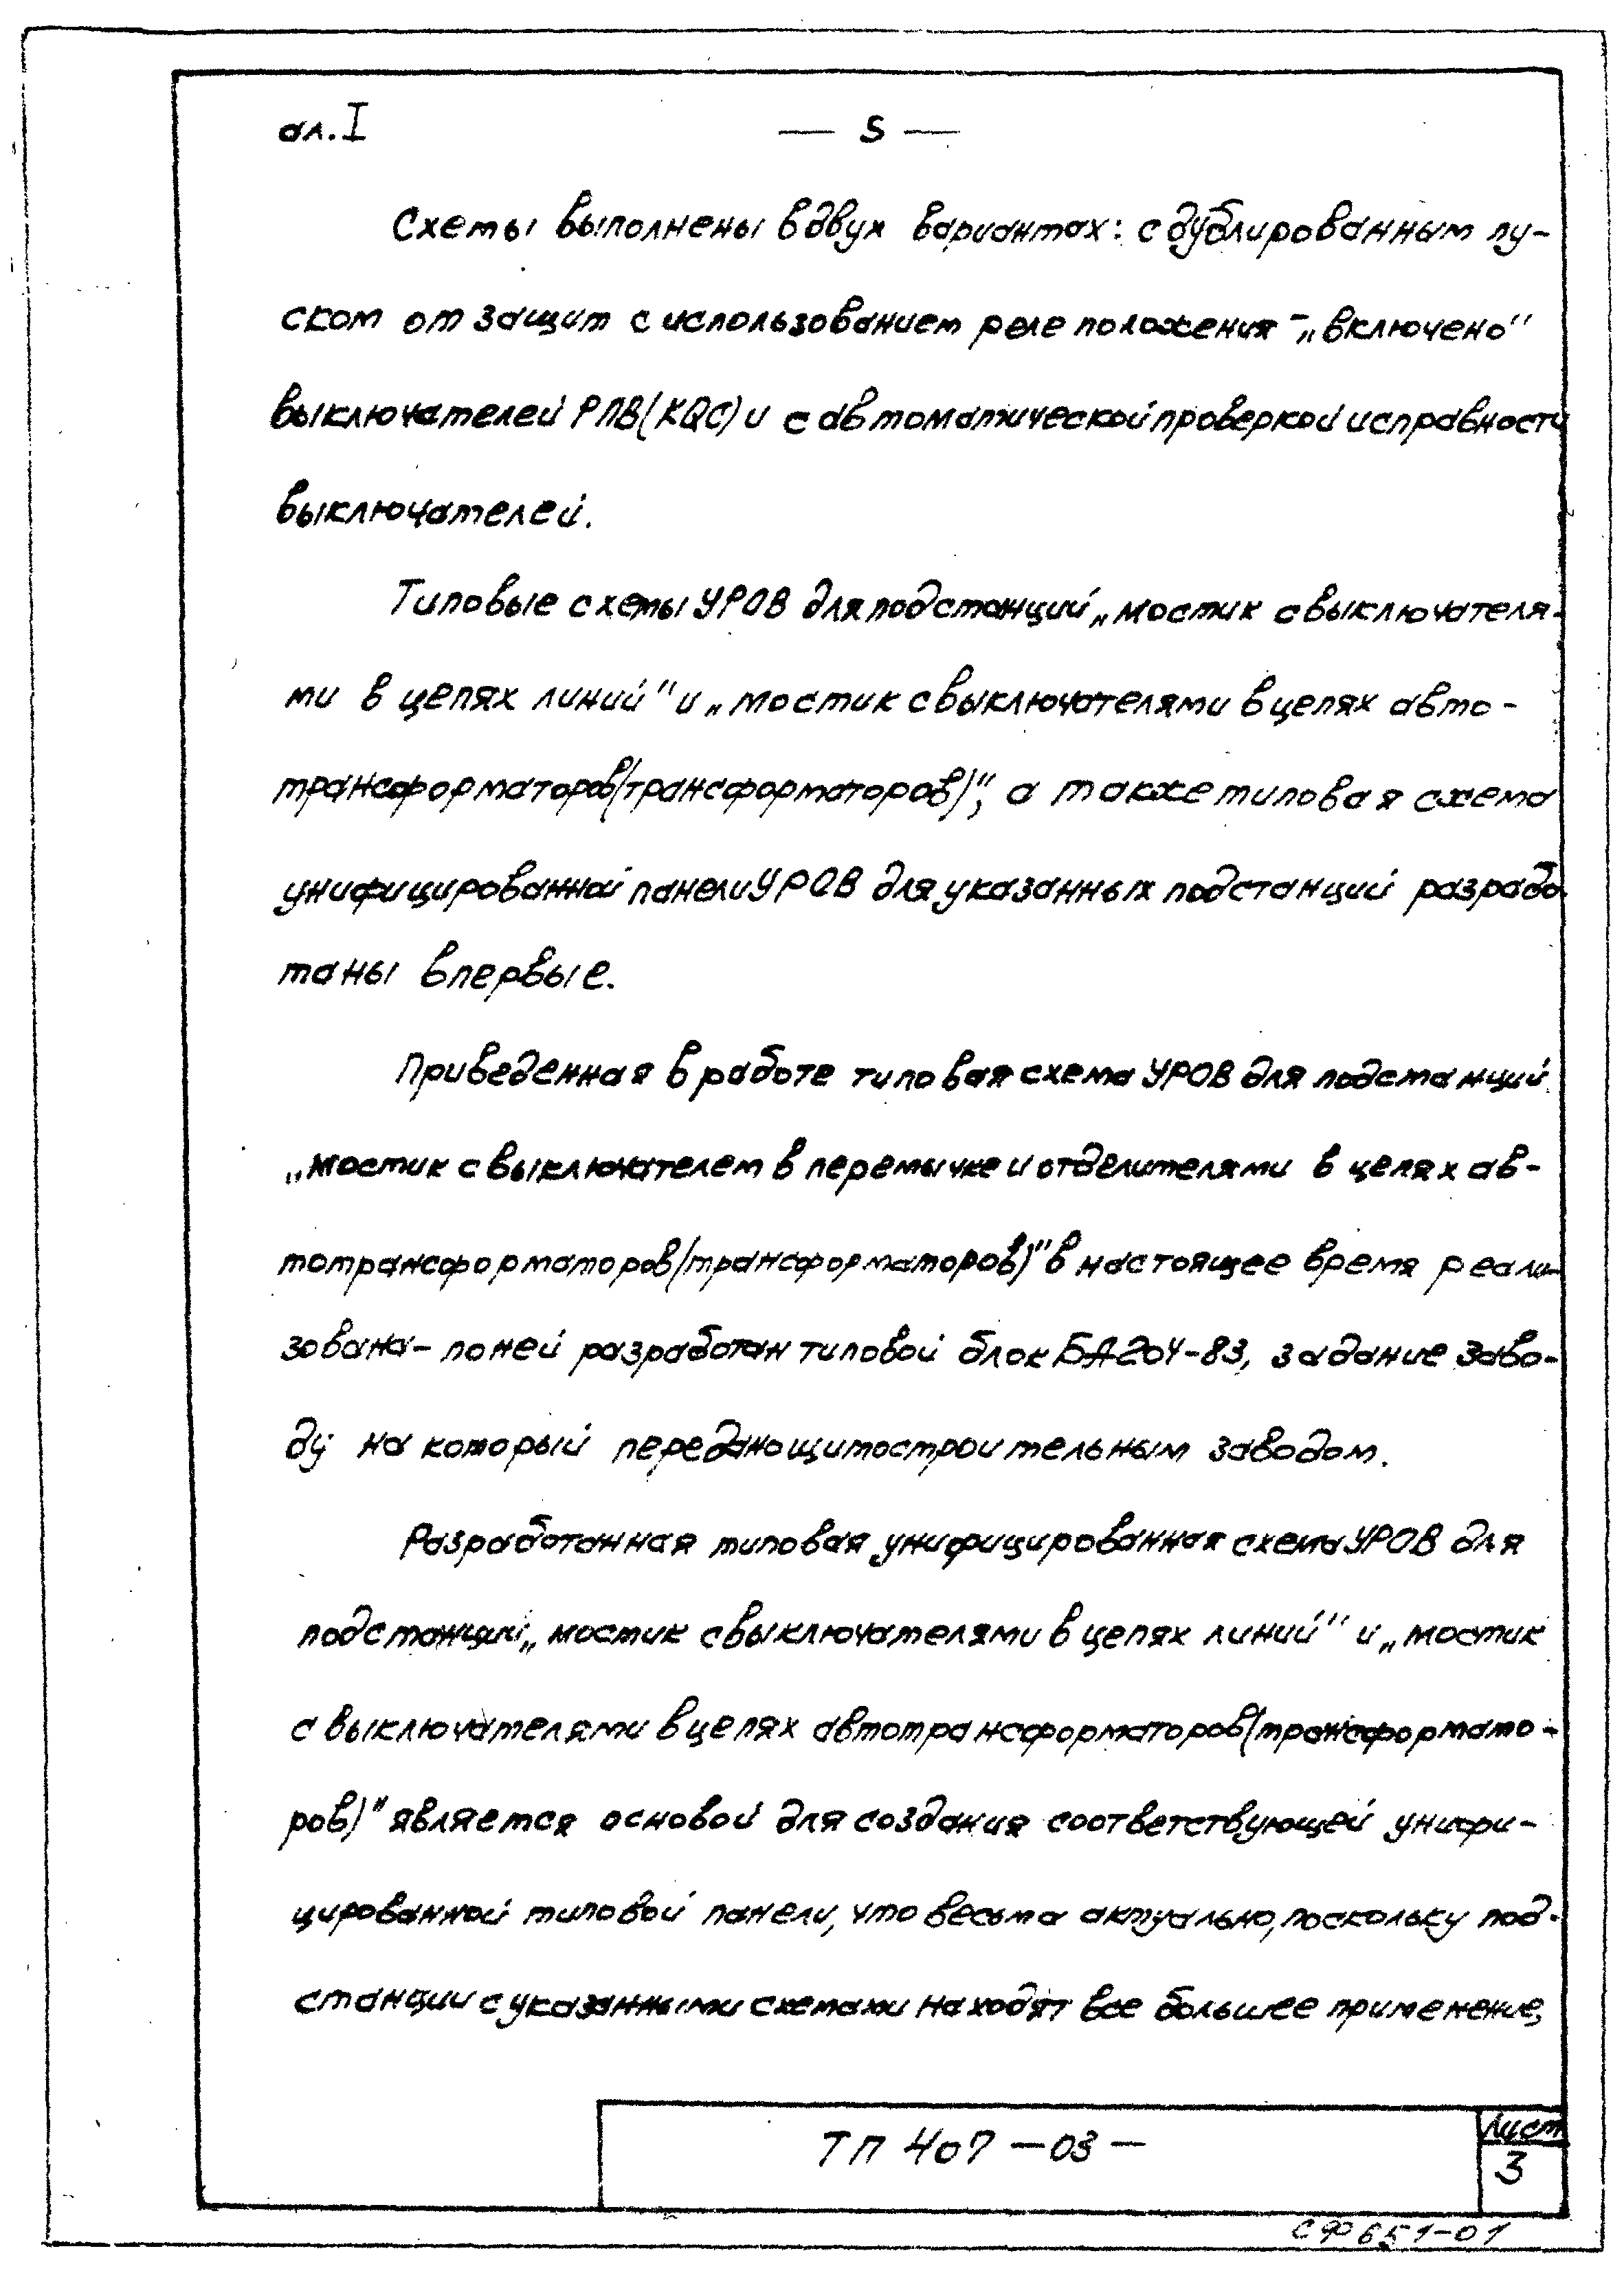 ал. I
— 5 —
Схемы выполнены в двух вариантах: с дублированным пу-
ском от защит с использованием реле положения - „включено"
выключателей РПВ (KQC) и с автоматической проверкой исправности
выключателей.
Типовые схемы УРОВ для подстанций „мостик с выключателя-
ми в цепях линий" и „мостик с выключателями в цепях авто-
трансформаторов (трансформаторов)", а также типовая схема
унифицированной панели УРОВ для указанных подстанций разрабо-
таны впервые.
Приведенная в работе типовая схема УРОВ для подстанций
„мостик с выключателем в перемычке и отделителями в цепях ав-
тотрансформаторов (трансформаторов)" в настоящее время реали-
зована - по ней разработан типовой блок БА204-83, задание заво-
ду на который передано щитостроительным заводом.
Разработанная типовая унифицированная схема УРОВ для
подстанций „мостик с выключателями в цепях линий" и „мостик
с выключателями в цепях автотрансформаторов (трансформато-
ров)" является основой для создания соответствующей унифи-
цированной типовой панели, что весьма актуально, поскольку под-
станции с указанными схемами находят все большее применение,
ТП 407 - 03 -
Лист
3
СФ 651-01